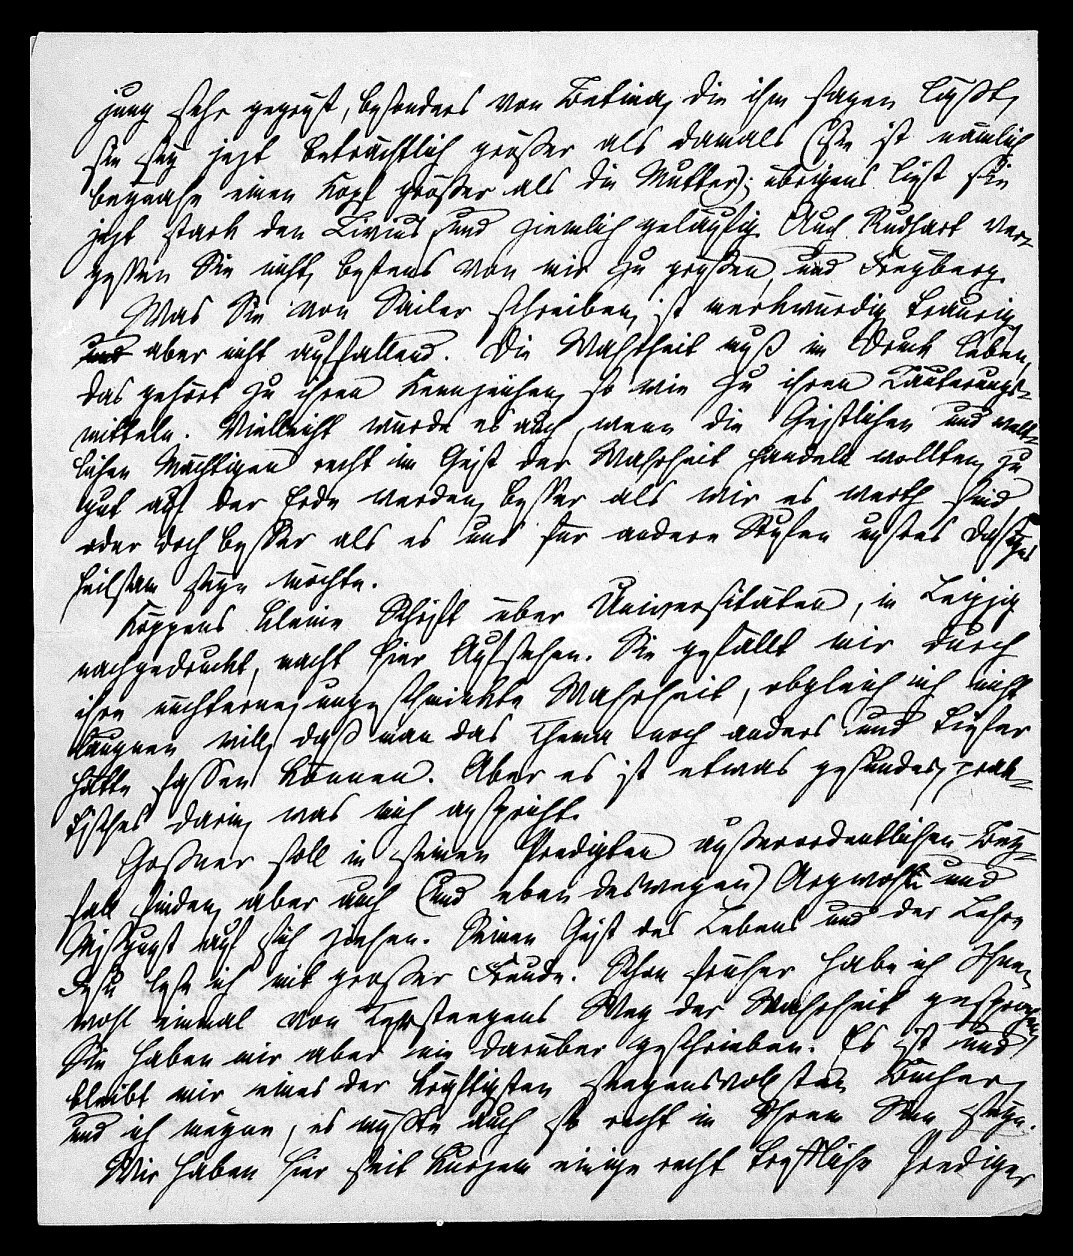 jung sehr gegrüßt, besonders von Betina, die ihm sagen läßt,
sie sey jezt beträchtlich größer als damals (sie ist nämlich
beynahe einen Kopf größer als die Mutter); übrigens liest sie
jezt stark den Livius, und ziemlich geläufig. Auch Rudhart ver-
gessen Sie nicht, bestens von mir zu grüßen, und Freyberg.
Was Sie von Sailer schreiben, ist merkwürdig, traurig,
und aber nicht auffallend. Die Wahrheit muß im Druck leben,
das gehört zu ihren Kennzeichen, so wie zu ihren Läuterungs-
mitteln. Vielleicht würde es auch, wenn die Geistlichen und welt-
lichen Mächtigen recht im Geist der Wahrheit handeln wollten, zu
gut auf der Erde werden, besser als wir es werth sind
oder doch besser als es uns für andere Stufen unsres Daseyns
heilsam seyn möchte.
Köppens kleine Schrift über Universitäten, in Leipzig
nachgedruckt, macht hier Aufsehen. Sie gefällt mir durch
ihre nüchterne, ungeschminkte Wahrheit, obgleich ich nicht
läugnen will, daß man das Thema noch anders und tiefer
hätte fassen können. Aber es ist etwas gesundes, prak-
tisches darin, was mich anspricht.
Goßner soll in seinen Predigten außerordentlichen Bey-
fall finden, aber auch (und eben deswegen) Argwohn und
Mißgunst auf sich ziehen. Seinen Geist des Lebens und der Lehre
Jesu lese ich mit großer Freude. Schon früher habe ich Ihnen
wohl einmal von Tersteegens Weg der Wahrheit gesprochen,
Sie haben mir aber nie darüber geschrieben. Es ist und
bleibt mir eines der kräftigsten, seegensvollsten Bücher,
und ich meyne, es müßte auch so recht in Ihrem Sinn seyn.
Wir haben hier seit Kurzem einige recht treffliche Prediger